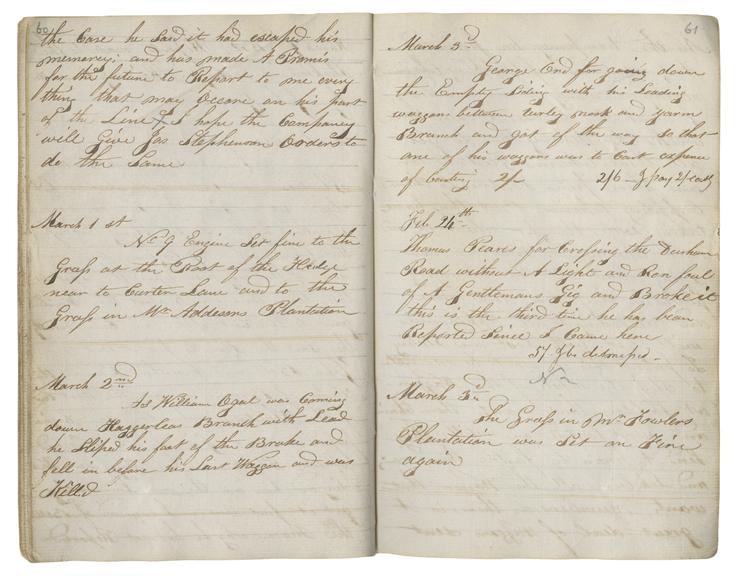 60
the Case he Said it had escaped his
memorey; and has made A Promis
for the future to Repart to me every
thing that may Occore on his part
of the Line & I hope the Companey
will Give Jas Stephenson Oorders to
do the Same
March 1 st
No 9 Engine Set fire to the
Grass at the Foot of the Hedge
near to Carter Lane and to the
Grass in Mr Addesons Plantation
March 2nd
As William Ogal was Coming
down Haggerleas Branch with Lead
he Sliped his foot of the Brake and
fell in before his Last Waggan and was
Killd
61
March 3d
George Ord for going down
the Empty Siding with his Loading
waggans between turley nook and yarm
Branch and got of the way so that
one of his waggans was to Cart expence
of Carting 2/- 2/6 - pay 2/ each
Feb 24th
Thomas Peares for Crossing the Durham
Road without A Light and Ran foul
of A Gentlemans Gig and Broke it
this is the third time he has bean
Reported Since I Came here
5/ & be dismissed -
March 3d
The Grass in Mr Fowlers
Plantation was Set on Fire
again